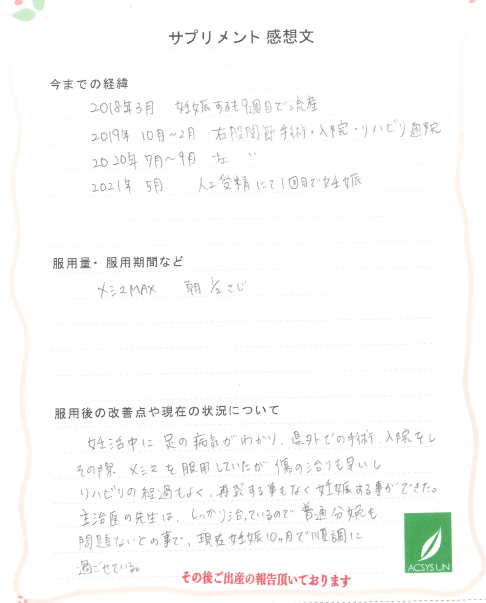 サプリメント 感想文
今までの経緯
2018年3月 妊娠するも9週目で流産
2019年 10月〜2月 右股関節手術・入院・リハビリ通院
2020年7月〜9月 左 〃
2021年 5月 人工受精にて1回目で妊娠
服用量・服用期間など
メシマMAX 朝 1/2 さじ
服用後の改善点や現在の状況について
妊活中に足の病気がわかり、県外での手術、入院をし
その際 メシマを服用していたが傷の治りも早いし
リハビリの経過もよく、再発する事もなく妊娠する事ができた。
主治医の先生は、しっかり治っているので普通分娩も
問題ないとの事で、現在妊娠10ヶ月で順調に
過ごせている。
その後ご出産の報告頂いております
ACSYS UN